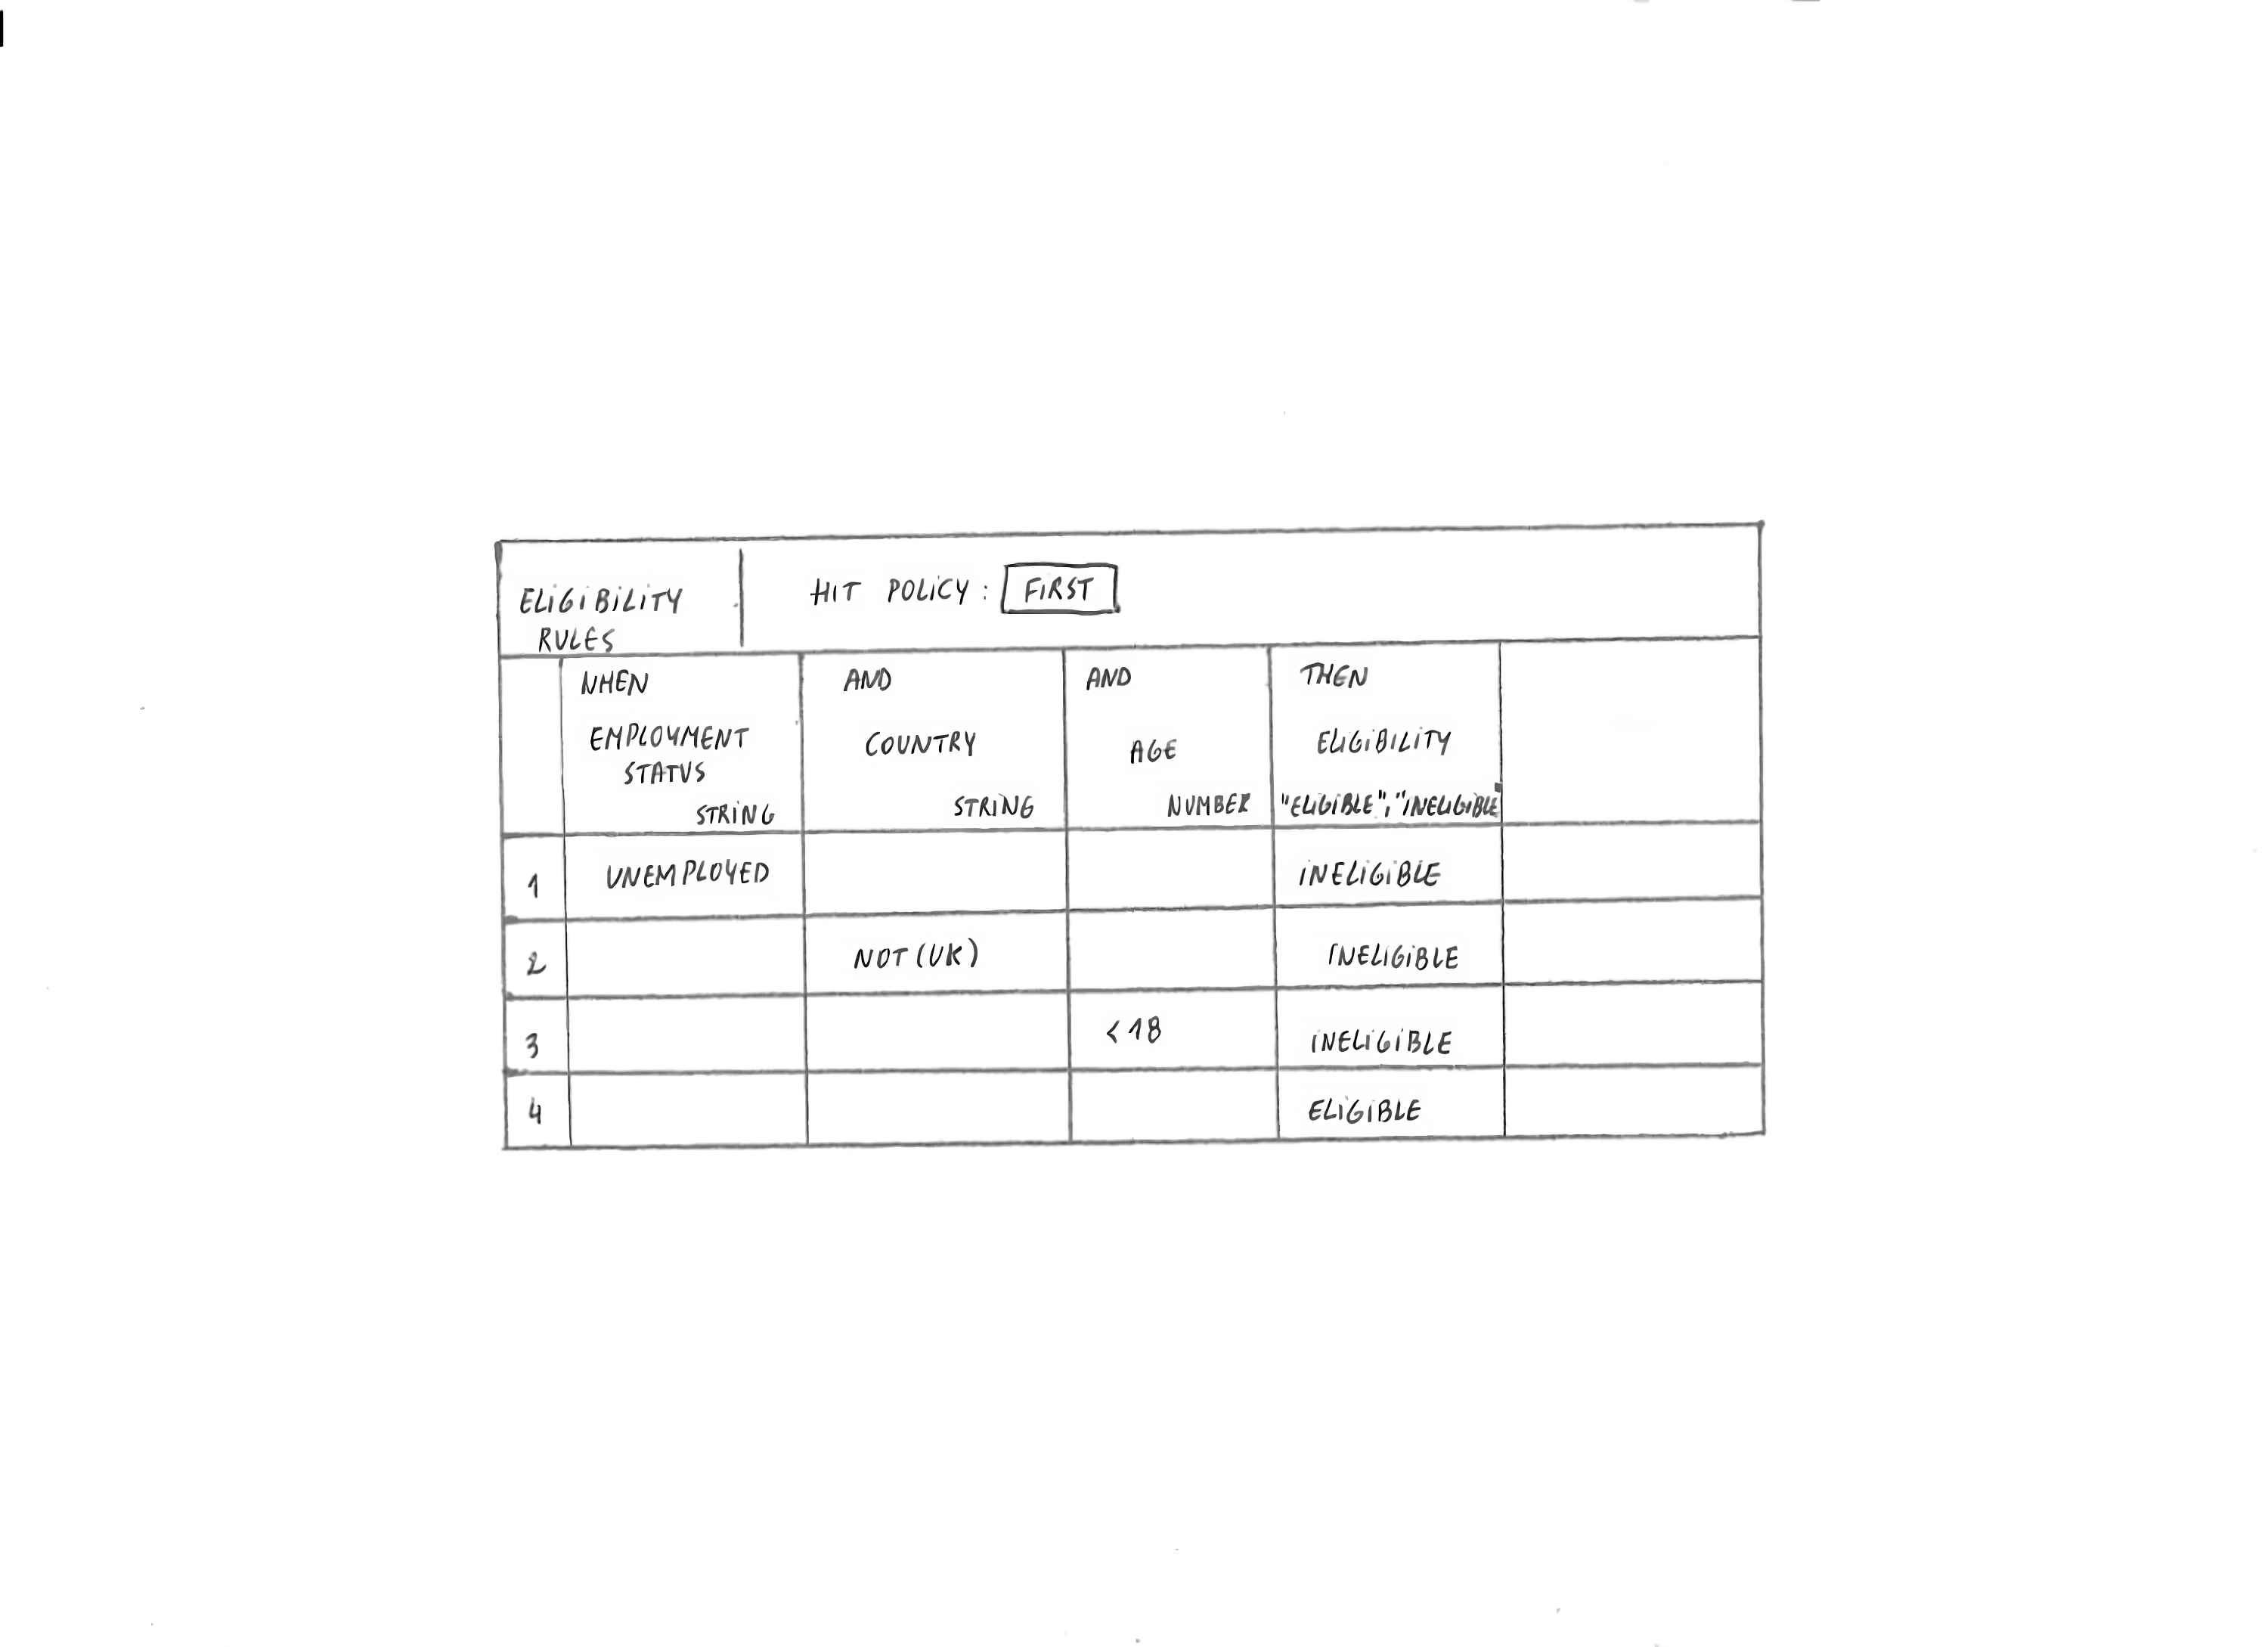 ELIGIBILITY
RULES
HIT POLICY: FIRST
WHEN
EMPLOYMENT
STATUS
STRING
AND
COUNTRY
STRING
AND
AGE
NUMBER
THEN
ELIGIBILITY
"ELIGIBLE";"INELIGIBLE"
1 UNEMPLOYED INELIGIBLE
2 NOT(UK) INELIGIBLE
3 <18 INELIGIBLE
4 ELIGIBLE